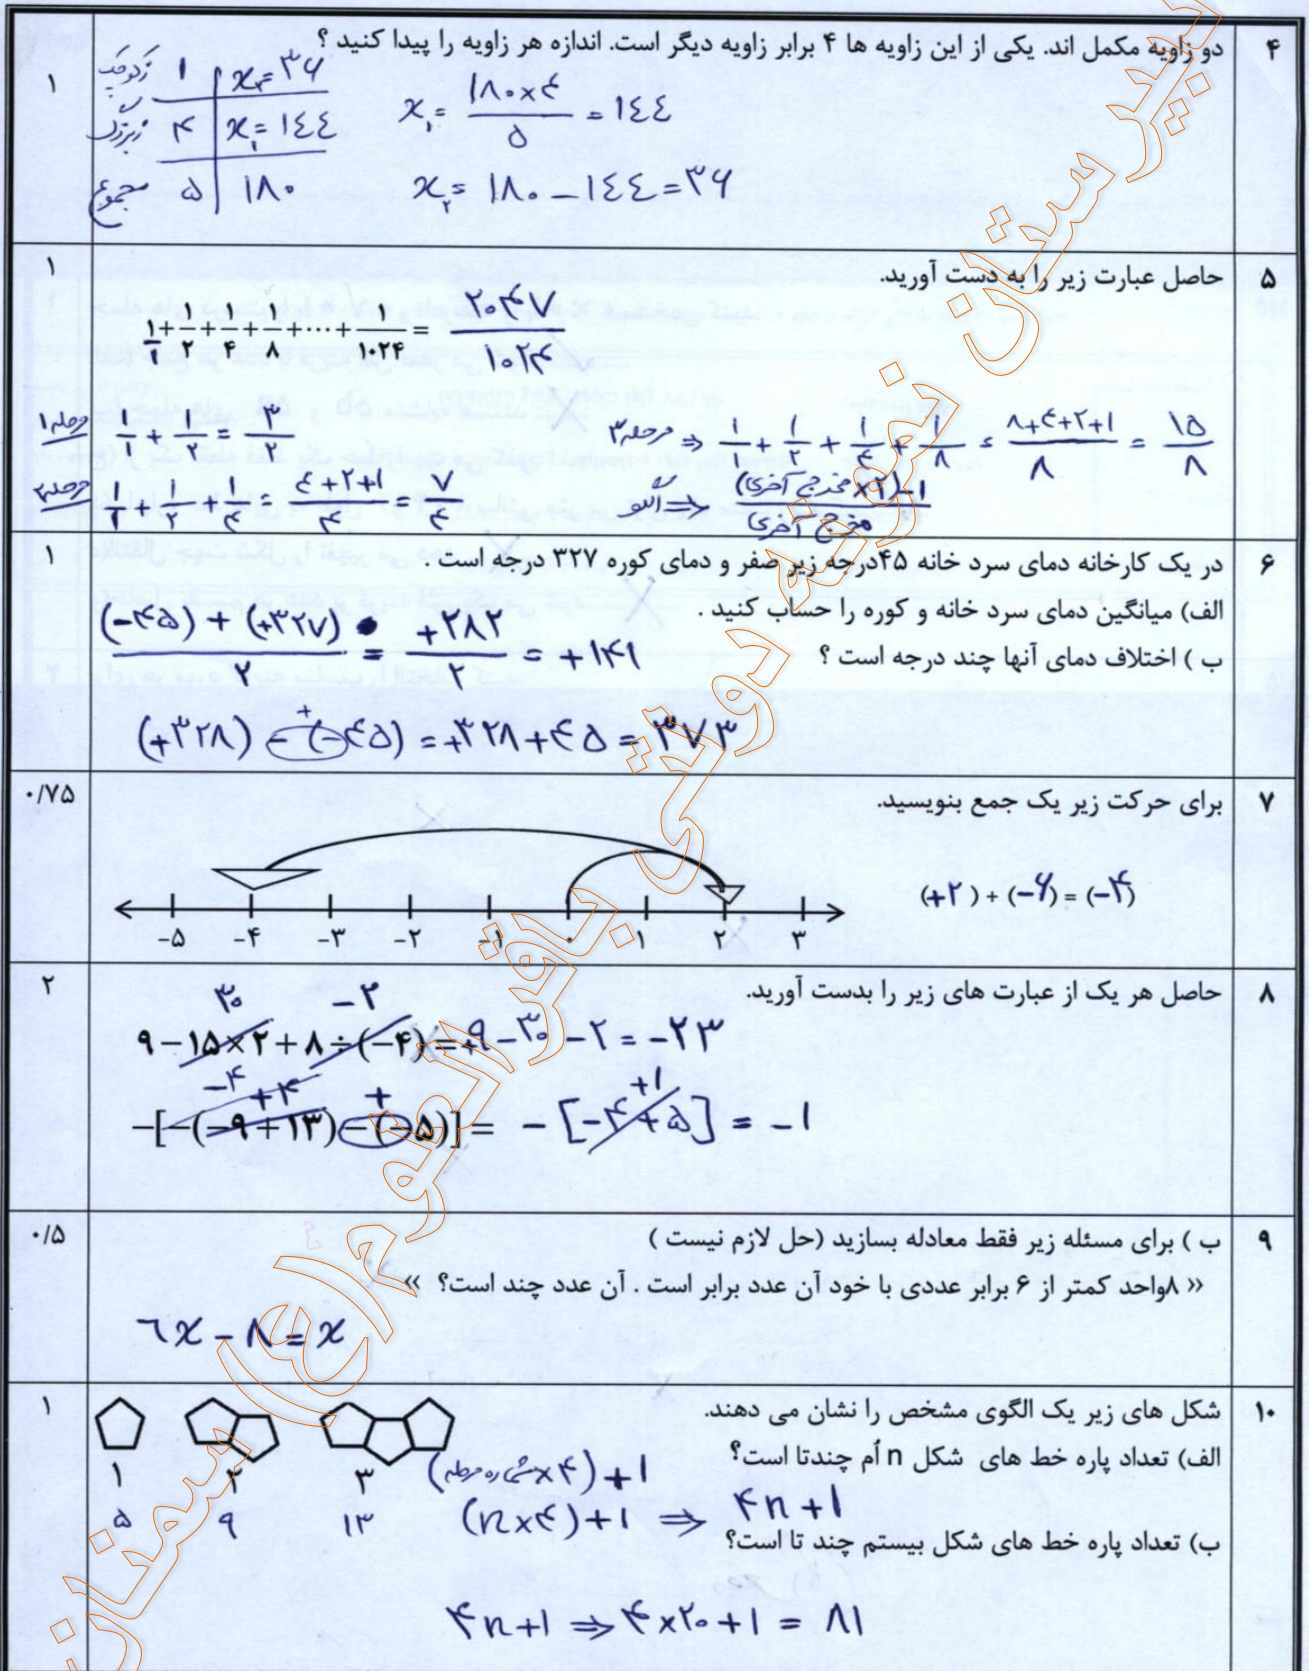 ۴ دو زاویه مکمل اند. یکی از این زاویه ها ۴ برابر زاویه دیگر است. اندازه هر زاویه را پیدا کنید ؟ ۱
۱ | x₂ = ۳۶
۴ | x₁ = ۱۴۴
مجموع ۵ | ۱۸۰
x₁ = (۱۸۰×۴)/۵ = ۱۴۴
x₂ = ۱۸۰ - ۱۴۴ = ۳۶
۵ حاصل عبارت زیر را به دست آورید. ۱
۱/۱ + ۱/۲ + ۱/۴ + ۱/۸ + ⋯ + ۱/۱۰۲۴ = ۲۰۴۷/۱۰۲۴
مرحله ۱ ۱/۱ + ۱/۲ = ۳/۲
مرحله ۲ ۱/۱ + ۱/۲ + ۱/۴ = (۴+۲+۱)/۴ = ۷/۴
مرحله ۳ ⇒ ۱/۱ + ۱/۲ + ۱/۴ + ۱/۸ = (۸+۴+۲+۱)/۸ = ۱۵/۸
الگو ⇒ (مخرج آخری×۲)-۱ / مخرج آخری
۶ در یک کارخانه دمای سرد خانه ۴۵درجه زیر صفر و دمای کوره ۳۲۷ درجه است . ۱
الف) میانگین دمای سرد خانه و کوره را حساب کنید .
((-۴۵) + (+۳۲۷))/۲ = +۲۸۲/۲ = +۱۴۱
ب ) اختلاف دمای آنها چند درجه است ؟
(+۳۲۸) - (-۴۵) = +۳۲۸+۴۵ = ۳۷۳
۷ برای حرکت زیر یک جمع بنویسید. ۰/۷۵
(+۲) + (-۶) = (-۴)
-۵ -۴ -۳ -۲ -۱ ۰ ۱ ۲ ۳
۸ حاصل هر یک از عبارت های زیر را بدست آورید. ۲
۳۰ -۲
۹-۱۵×۲+۸÷(-۴) = +۹-۳۰-۲ = -۲۳
-۴ +۴ + +۱
-[-(-۹+۱۳)-(-۵)] = -[-۴+۵] = -۱
۹ ب ) برای مسئله زیر فقط معادله بسازید (حل لازم نیست ) ۰/۵
« ۸واحد کمتر از ۶ برابر عددی با خود آن عدد برابر است . آن عدد چند است؟ »
۶x - ۸ = x
۱۰ شکل های زیر یک الگوی مشخص را نشان می دهند. ۱
الف) تعداد پاره خط های شکل n اُم چندتا است؟
۱ ۲ ۳
۵ ۹ ۱۳
(شماره مرحله×۴)+۱
(n×۴)+۱ ⇒ ۴n+۱
ب) تعداد پاره خط های شکل بیستم چند تا است؟
۴n+۱ ⇒ ۴×۲۰+۱ = ۸۱
دبیرستان نمونه دولتی باقرالعلوم(ع) سمنان